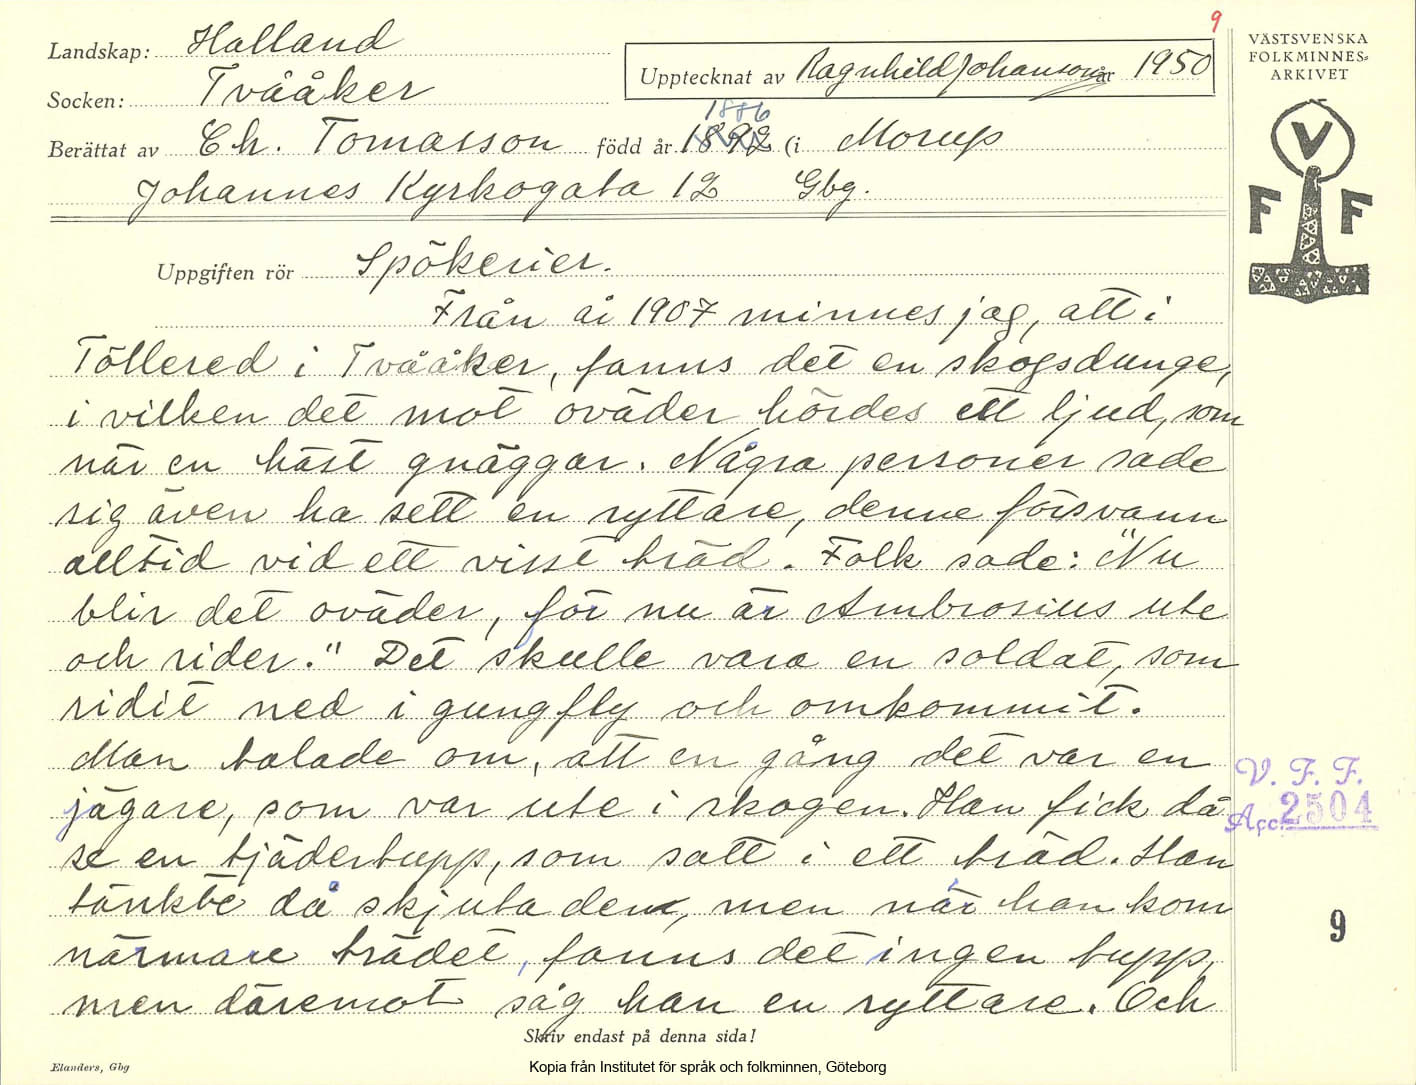 9
Landskap: Halland
Upptecknat av Ragnhild Johanson år 1950
Socken: Tvååker
1886
Berättat av Ch. Tomasson född år 1892 (i Morup
Johannes Kyrkogata 12 Gbg.
VÄSTSVENSKA
FOLKMINNES-
ARKIVET
V
F F
Uppgiften rör Spökerier.
Från år 1907 minnes jag, att i
Töllered i Tvååker, fanns det en skogsdunge,
i vilken det mot oväder hördes ett ljud, som
när en häst gnäggar. Några personer sade
sig även ha sett en ryttare, denne försvann
alltid vid ett visst träd. Folk sade: "Nu
blir det oväder, för nu är Ambrosius ute
och rider." Det skulle vara en soldat, som
ridit ned i gungfly och omkommit.
Man talade om, att en gång det var en
jägare, som var ute i skogen. Han fick då
se en tjädertupp, som satt i ett träd. Han
tänkte då skjuta den, men när han kom
närmare trädet, fanns det ingen tupp,
men däremot såg han en ryttare. Och
V. F. F.
Acc. 2504
9
Skriv endast på denna sida!
Elanders, Gbg
Kopia från Institutet för språk och folkminnen, Göteborg